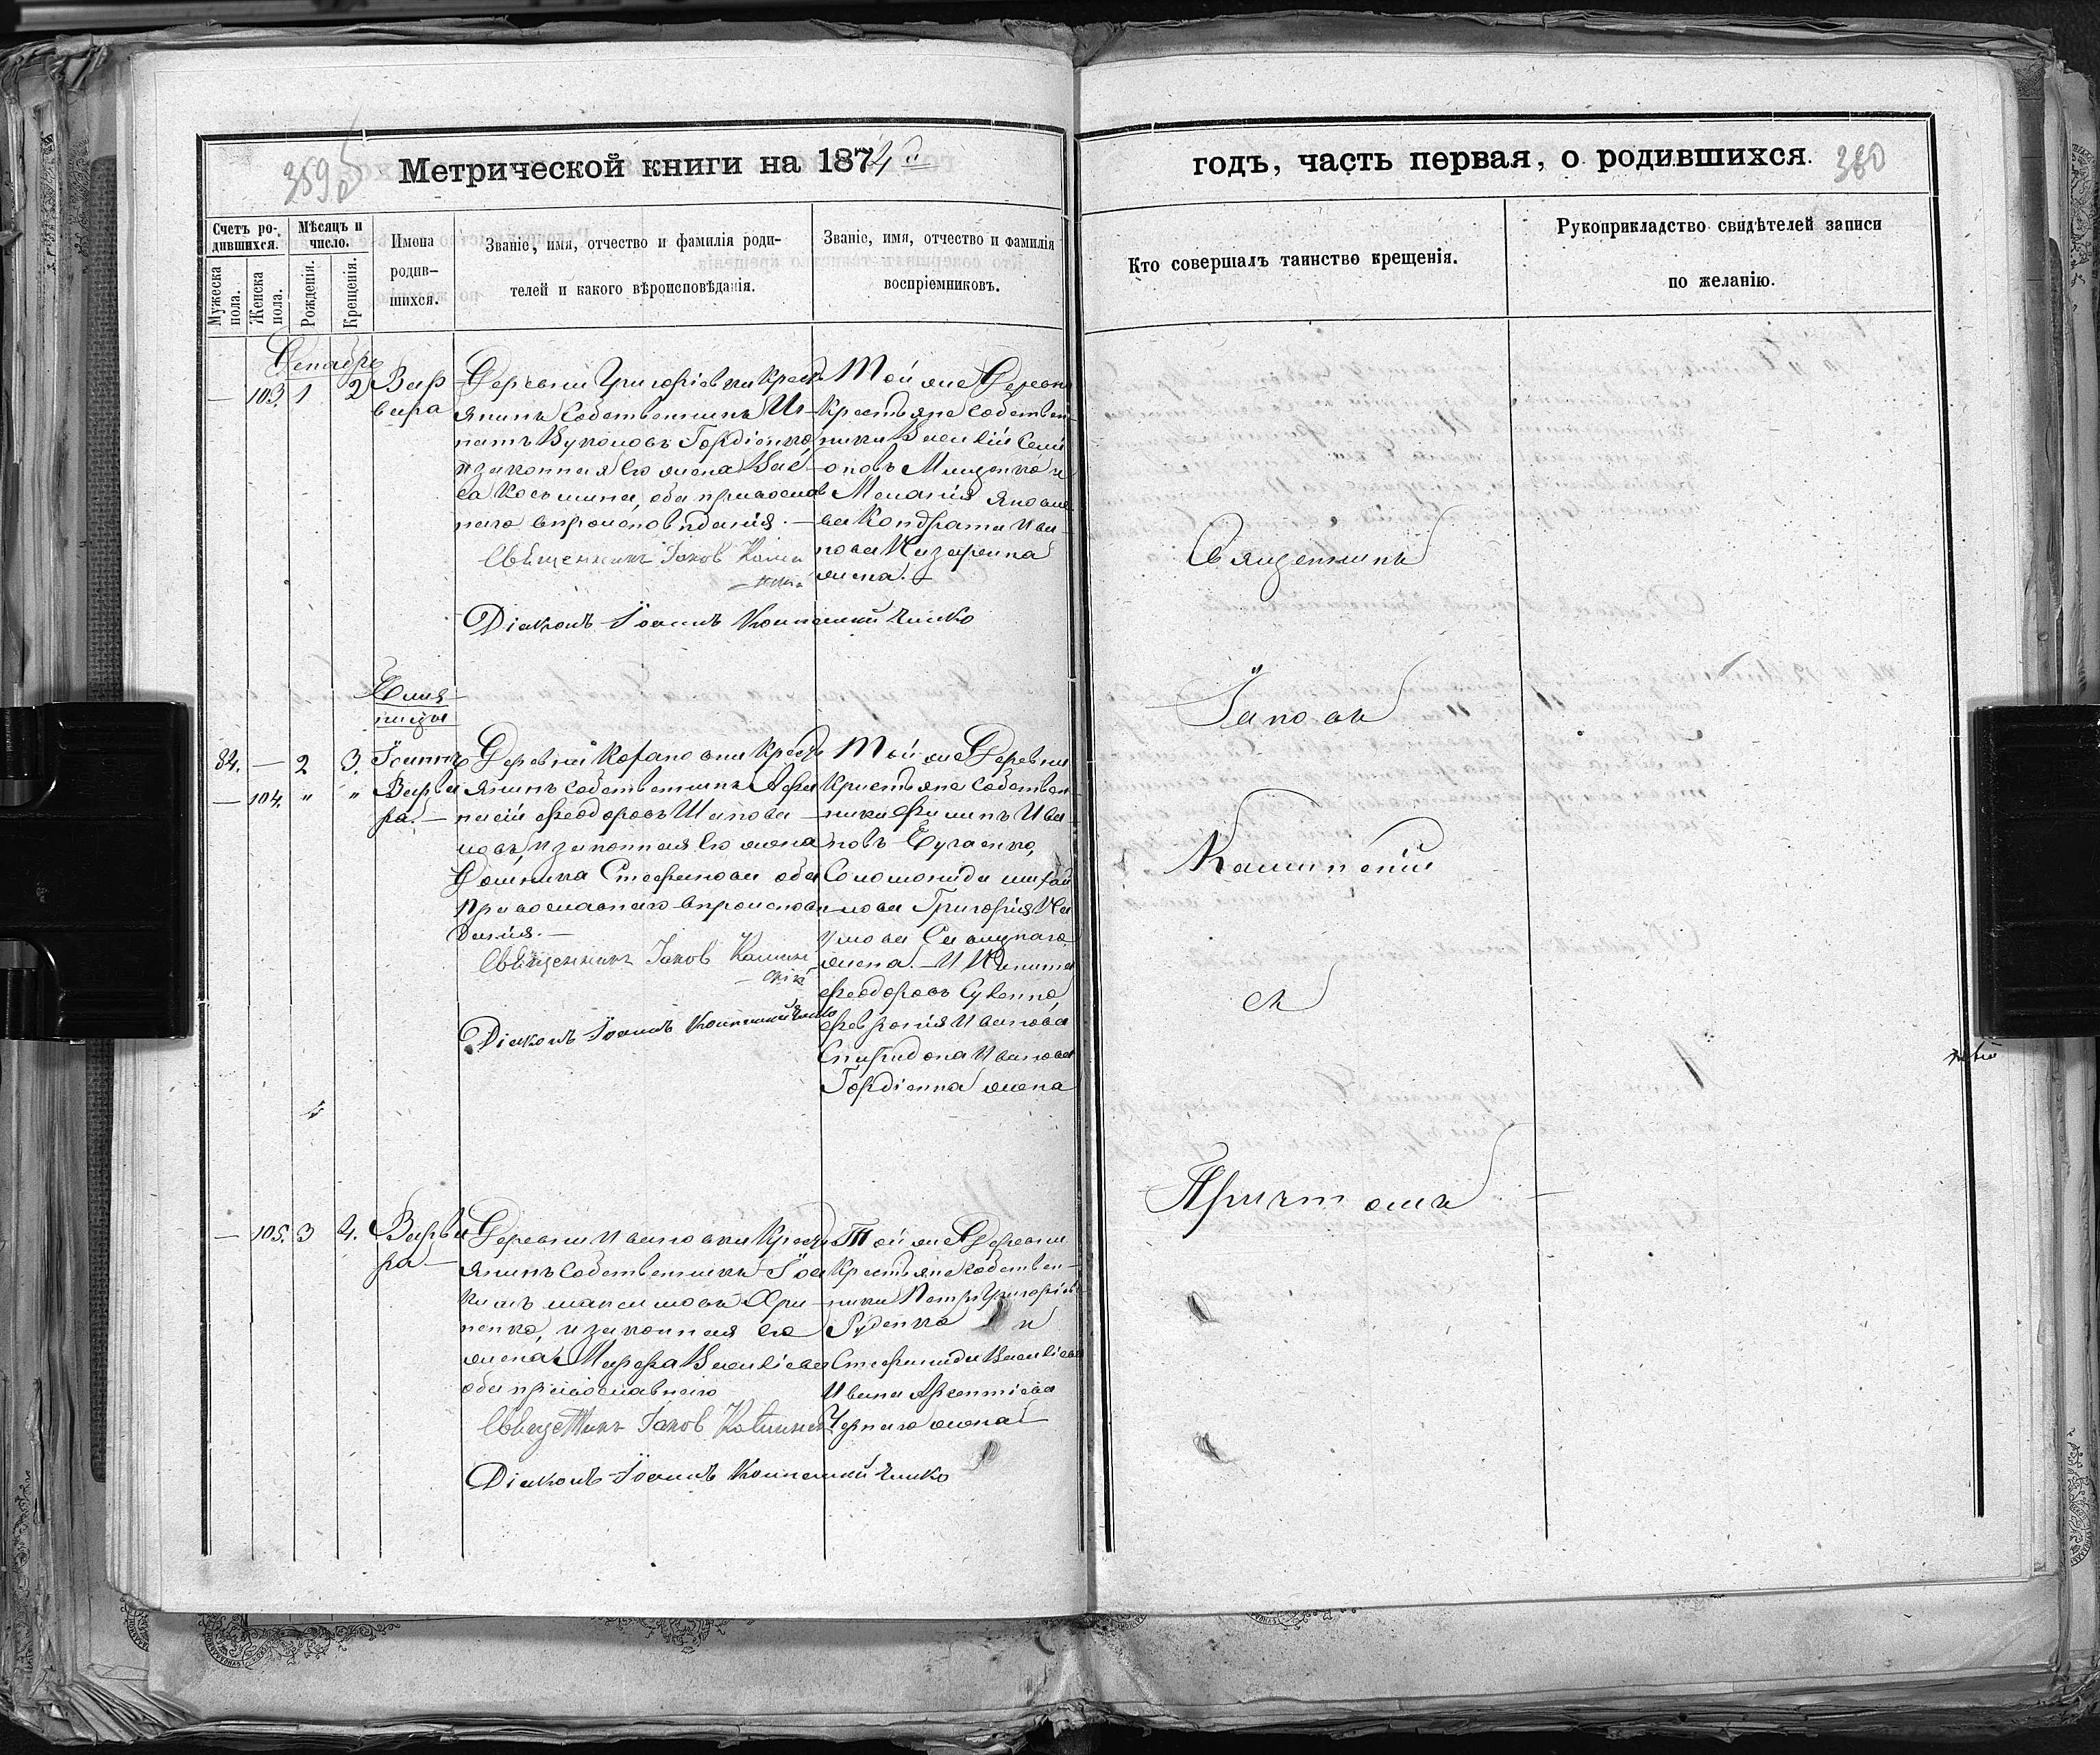 Метрической книги на 1874й
годъ, часть первая, о родившихся.
380
Счетъ ро-
дившихся.
Мѣсяцъ и
число.
Мужеска
пола.
Женска
пола.
Рожденія.
Крещенія.
Имена
родив-
шихся.
Званіе, имя, отчество и фамилія роди-
телей и какого вѣроисповѣданія.
Званіе, имя, отчество и фамилія
воспріемниковъ.
Кто совершалъ таинство крещенія.
Рукоприкладство свидѣтелей записи
по желанію.
Декабрь
— 103. 1 2 Вар
вара
Деревни Григорьевки Кресть
янинъ Собственникъ Иг-
натъ Вуколовъ Гордіенко
и законная его жена Васс-
са Косьмина, оба православ
наго вѣроисповѣданія. —
Священникъ Іаковъ Камин
Діаконъ Іоаннъ
Той же Деревни
Крестьяне собствен-
ники Василій Семі
оновъ Мищенко и
Меланія Яковле
ва Кондрата Ива
нова Назаренка
жена. —
Близ-
нецы
84. — 2 3. Іоаннъ
— 104. " " Варва
ра. —
Деревни Кресть
янинъ собственникъ Афа
насій Феодоровъ Шапова
ловъ, и законная его жена
Домника Стефанова оба
Православнаго вѣроисповѣ
данія. —
Священникъ Іаковъ Камин
скій
Діаконъ Іоаннъ
Той же Деревни
Крестьяне Собствен
ники Филипъ Ива
новъ
Соломонида Михай
лова Григорія На
умова
жена. — И Никита
Феодоровъ
Февронія Иванова
Спиридона Иванова
Гордіенка жена
— 105. 3 4. Варва
ра —
Деревни Ивановки Кресть
янинъ Собственникъ Іоа
кимъ Максимовъ Хри
ненко, и законная его
жена Марфа Васильева
оба православнаго
Священникъ Іаковъ
Діаконъ Іоаннъ
Той же Деревни
Крестьяне собствен-
ники Петръ Григорьевъ
Руденко и
Стефанида Васильева
Ивана Арсентіева
Чернаго жена
Священникъ
Іаковъ
Каминскій
съ
Причтомъ